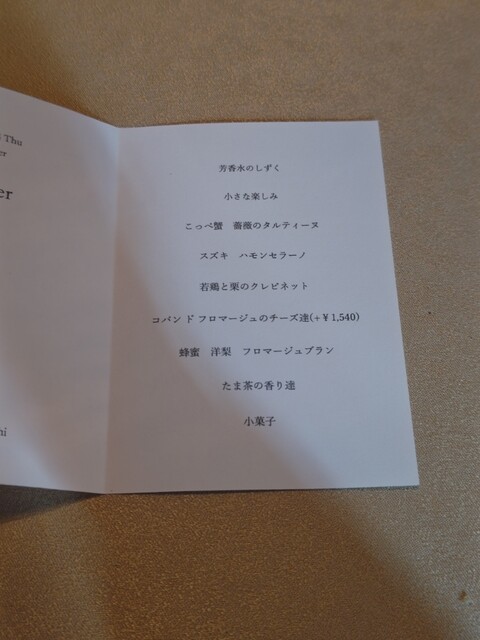 Thu
er
er
ni
芳香水のしずく
小さな楽しみ
こっぺ蟹　薔薇のタルティーヌ
スズキ　ハモンセラーノ
若鶏と栗のクレピネット
コバン ド フロマージュのチーズ達(+￥1,540)
蜂蜜　洋梨　フロマージュブラン
たま茶の香り達
小菓子